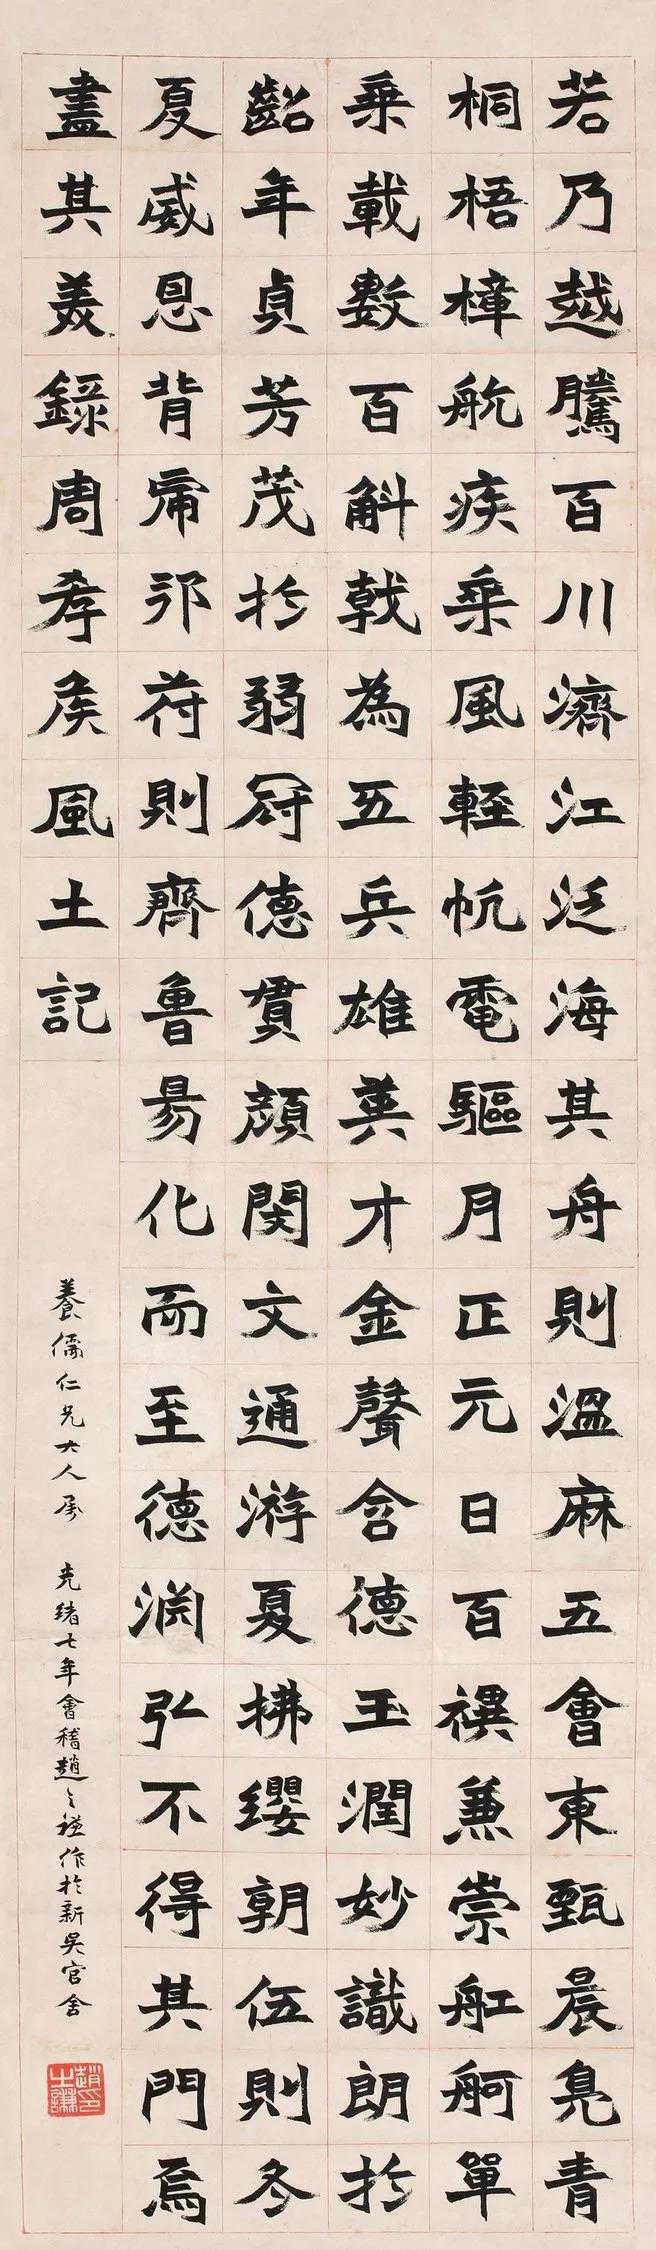 若乃越騰百川濟江泛海其舟則溫麻五會東甄晨鳧青
桐梧樟航疾乘風輕帆電驅月正元日百禩兼崇舡舸單
乘載數百斛戟為五兵雄英才金聲含德玉潤妙識朗於
齠年貞芳茂於弱冠德貫顏閔文通游夏拂纓朝伍則冬
夏威恩背帝邘苻則齊魯易化而至德淵弘不得其門焉
盡其美錄周孝侯風土記
養儒仁兄大人屬 光緒七年會稽趙之謙作於新吳官舍
趙之謙印